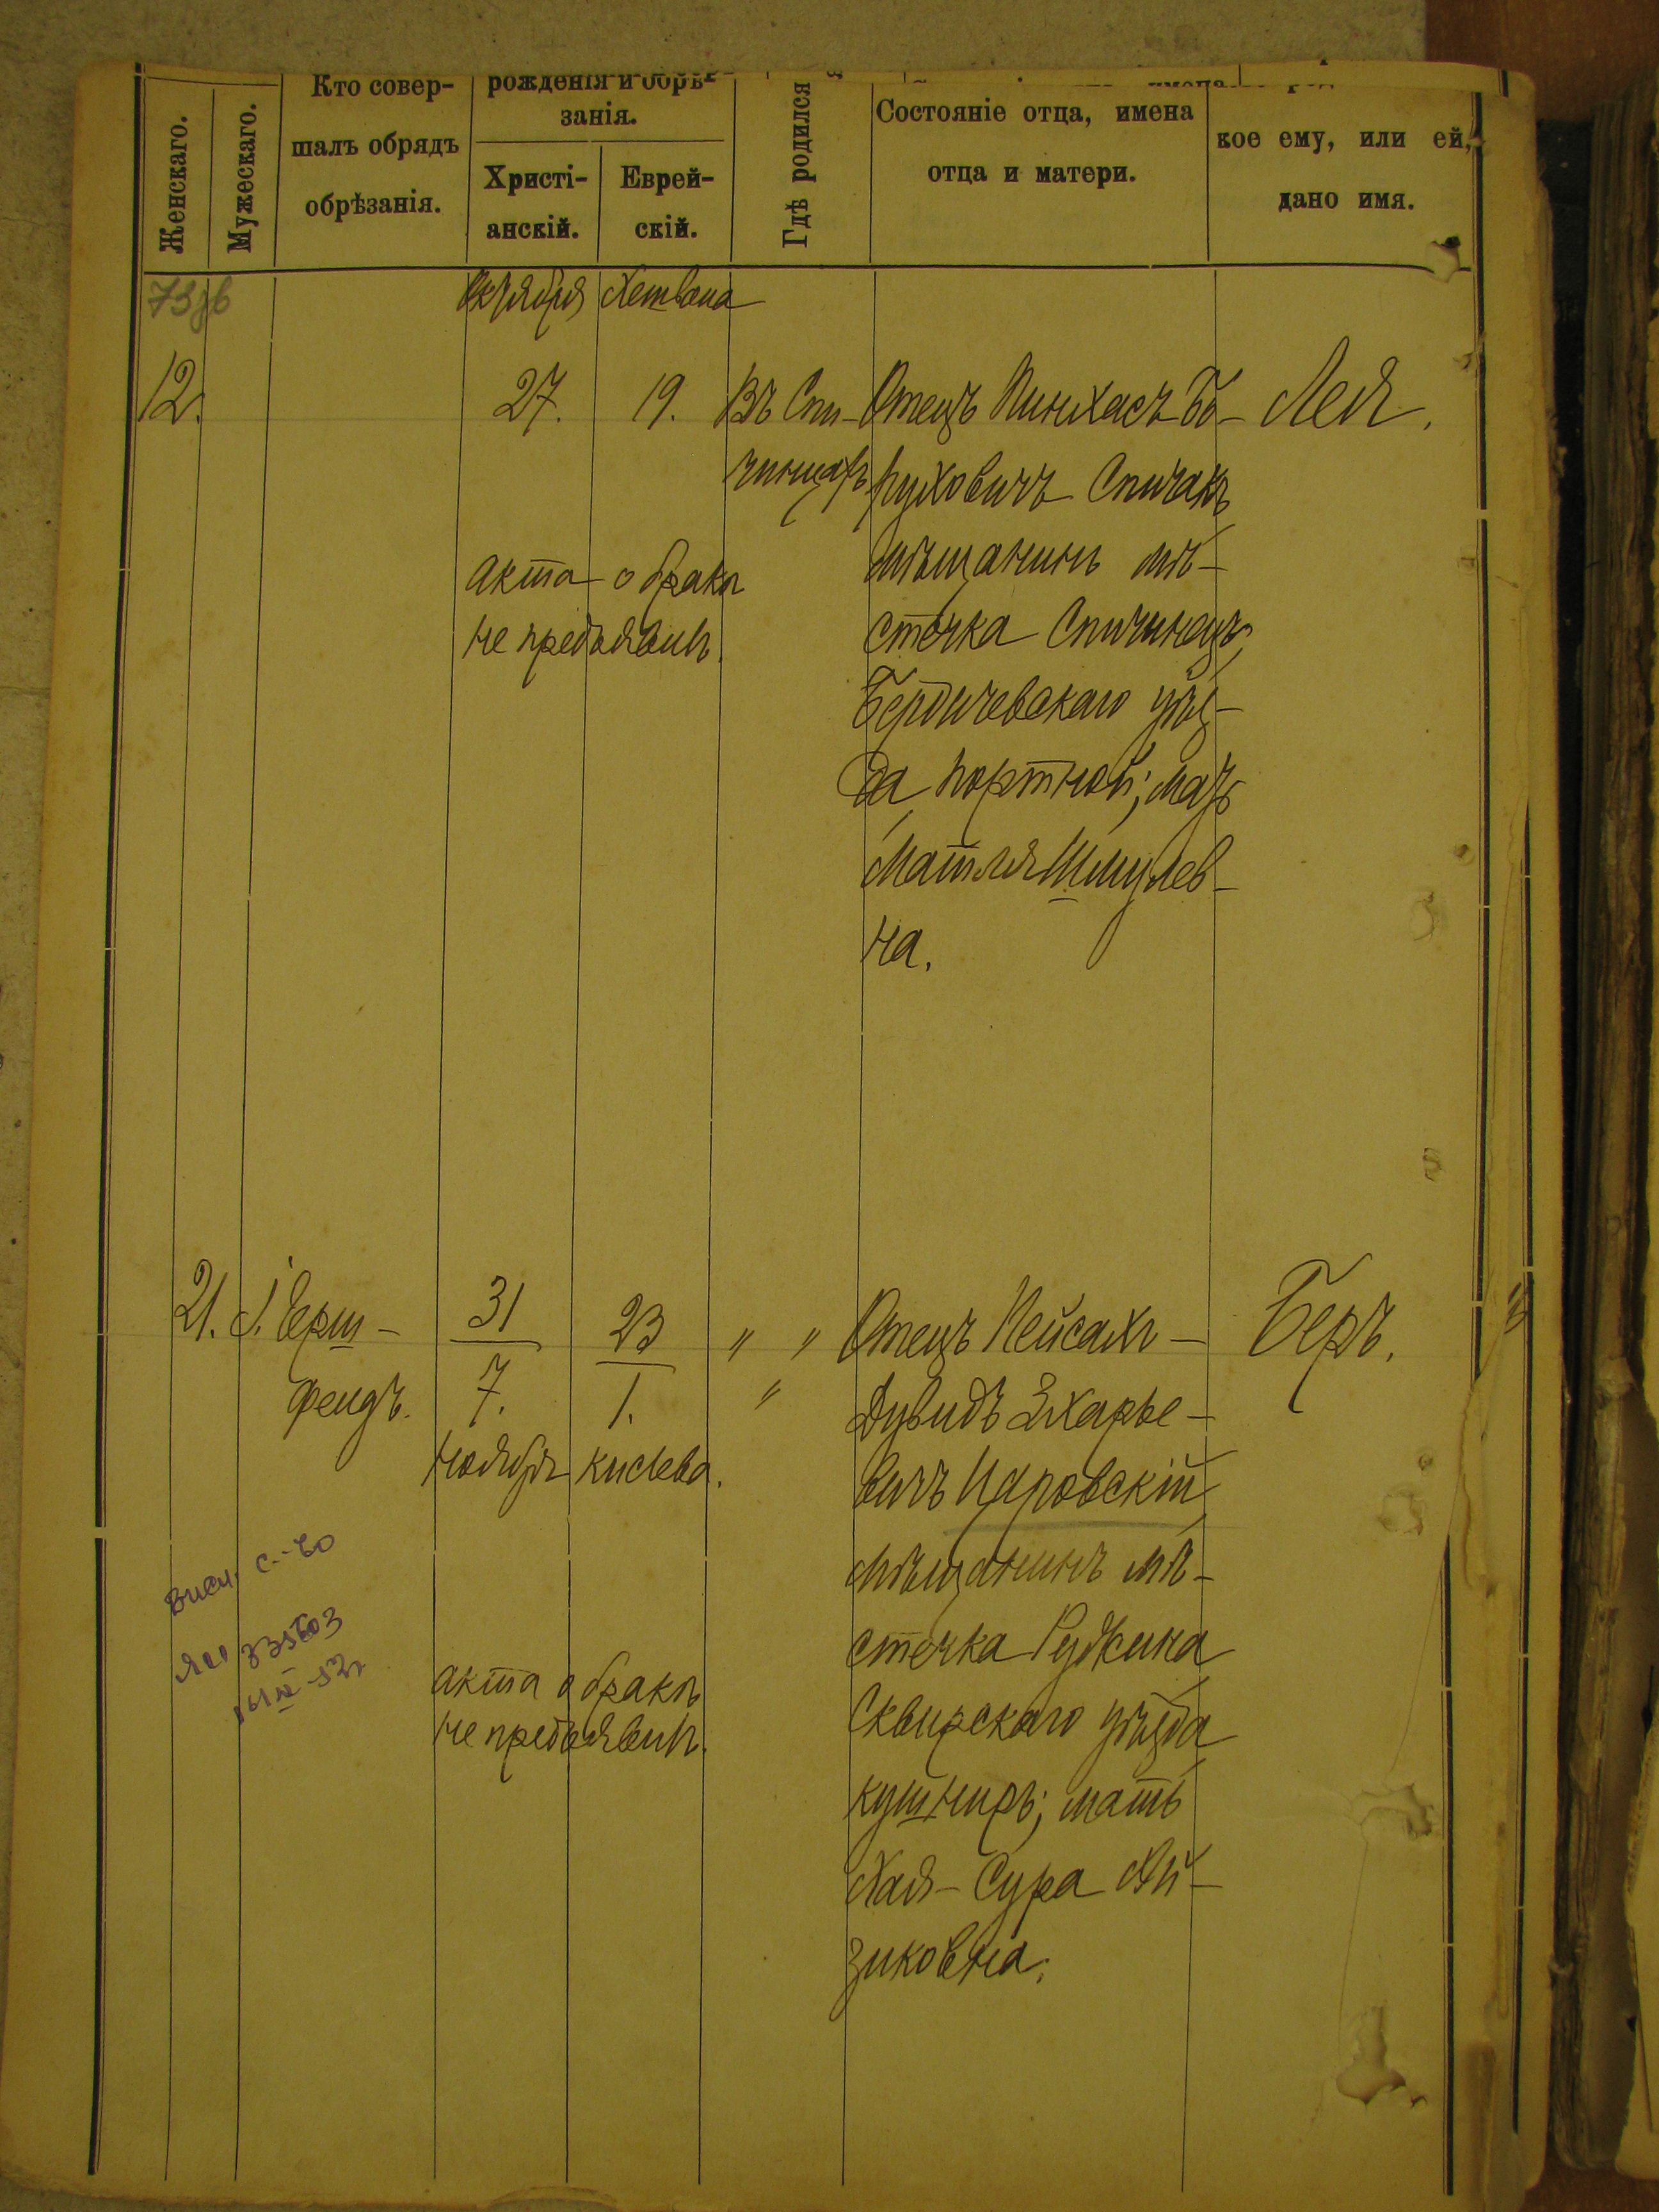 Женскаго.
Мужескаго.
Кто совер-
шалъ обрядъ
обрѣзанія.
рожденія и обрѣ-
занія.
Христі-
анскій.
Еврей-
скій.
Гдѣ родился
Состояніе отца, имена
отца и матери.
кое ему, или ей,
дано имя.
Октября Хешвана
12.
27.
19.
Въ Спи-
чинцахъ
Отецъ Пинхасъ Бо-
руховичъ Спичакъ
мѣщанинъ мѣ-
стечка Спичинецъ
Бердичевскаго уѣз-
да портной; мать
Матля Шмулев-
на.
Лея.
акта о бракѣ
не предъявилъ.
21.
Герш-
фендъ.
31
7.
Ноября
23
1.
кислева.
" "
"
Отецъ Пейсахъ-
Дувидъ Зхарье-
вичъ Царовскій
мѣщанинъ мѣ-
стечка Ружина
Сквирскаго уѣзда
кушниръ; мать
Хая-Сура Ай-
зиковна.
Беръ.
акта о бракѣ
не предъявилъ.